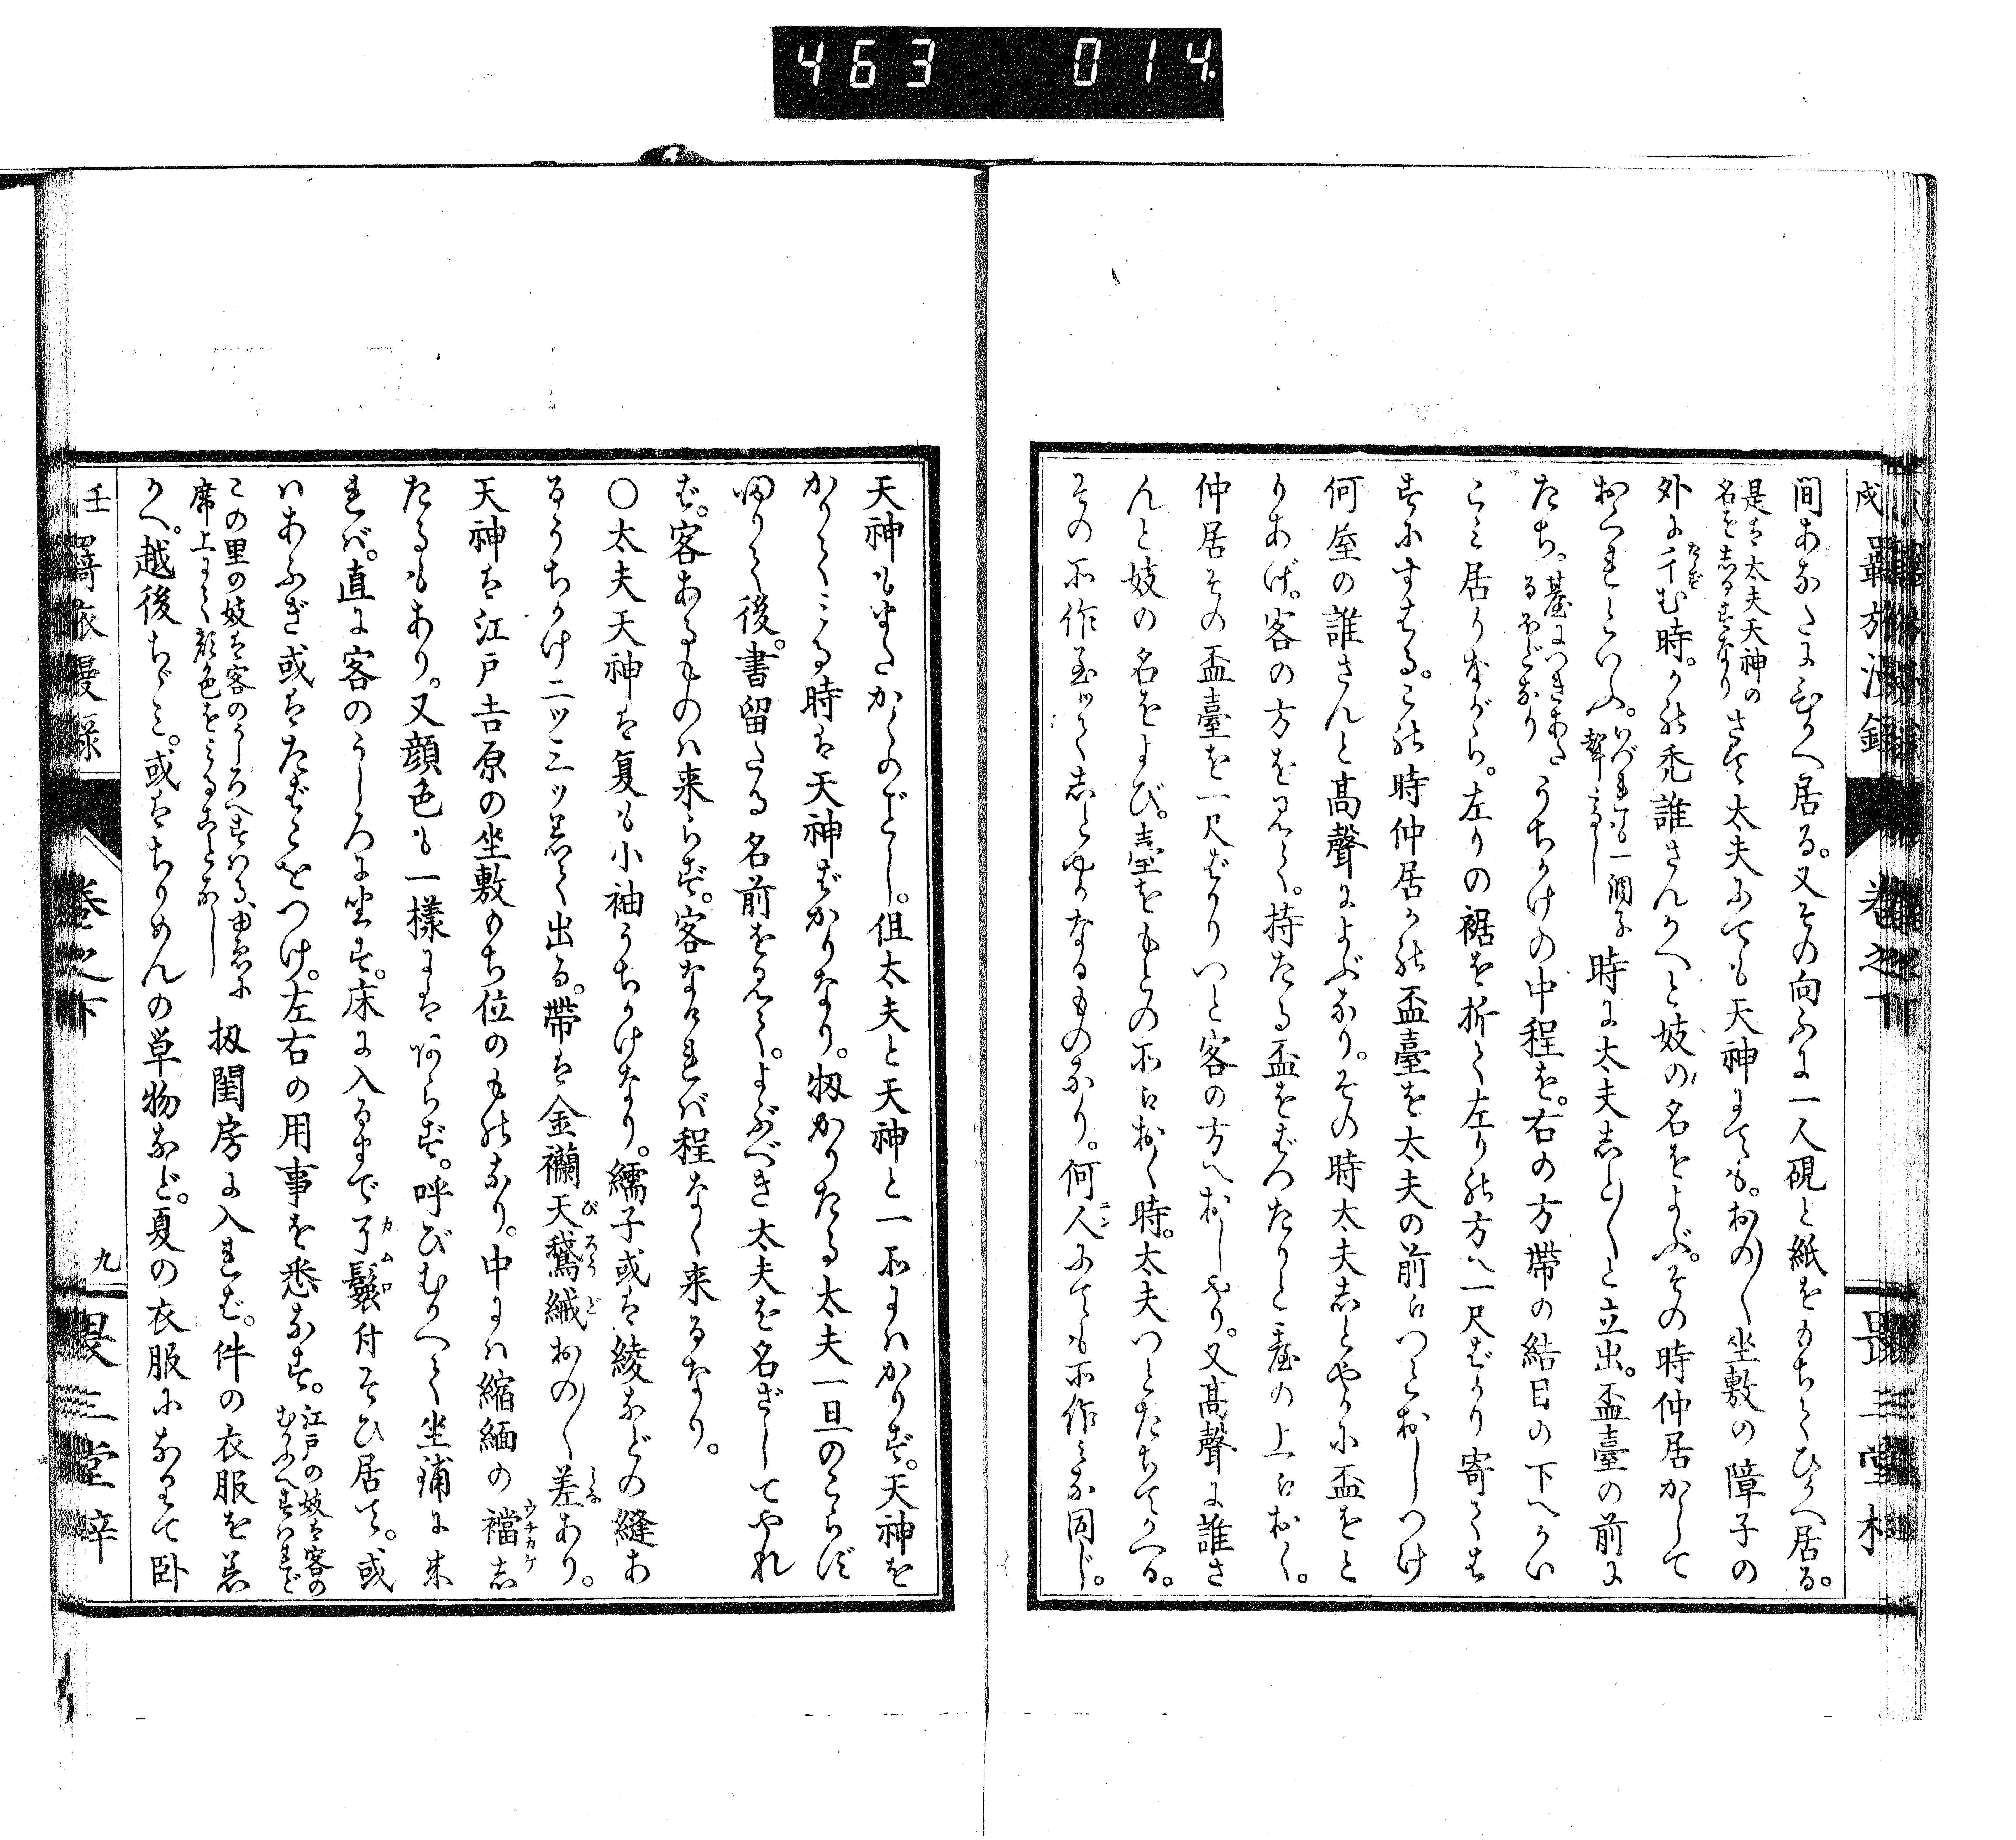 463 014
壬戌羇旅漫録 巻之下 畏三堂梓
間あなたにひかへ居る。又その向ふに一人硯と紙をもちてひかへ居る。
是は太夫天神の
名をしるすなり
さて太夫にても天神にても。おの〳〵坐敷の障子の
外に彳む時。かの禿誰さんかへと妓の名をよぶ。その時仲居かしして
おくれといふ。
いづれも一調子
聲高し
時に太夫しと〳〵と立出。盃臺の前に
たち。
基につきあた
るほどなり
うちかけの中程を。右の方帶の結目の下へかい
こみ居りながら。左りの裾を折て左りの方へ一尺ばかり寄てち
きにすはる。この時仲居かの盃臺を太夫の前につとおしつけ
何屋の誰さんと高聲によぶなり。その時太夫しとやかに盃をと
りあげ。客の方を見て。持たる盃をばつたりと臺の上におく。
仲居その盃臺を一尺ばかりいと客の方へおしやり。又高聲に誰さ
んと妓の名をよび。臺をもとの所におく時。太夫つとたちてかへる。
その所作至ッてしとやかなるものなり。何人にても所作みな同じ。
天神もまたかくのごとし。但太夫と天神と一所にはかりず。天神を
かりてみる時は天神ばかりなり。扨かりたる太夫一旦のこらず
帰りて後。書留たる名前を見て。よぶべき太夫を名ざしてやれ
ば。客あるものは来らず。客なければ程なく来るなり。
○太夫天神は夏も小袖うちかけなり。繻子或は綾などの縫あ
るうちかけ二ッ三ッ着て出る。帶は金襴天鵞絨おの〳〵差あり。
天神は江戸吉原の坐敷もち位のものなり。中には縮緬の襠し
たるもあり。又顔色も一樣には何らず。呼びむかへて坐鋪に来
れバ。直に客のうしろに坐す。床に入るまで了鬟付そひ居て。或
はあふぎ或はたばこをつけ。左右の用事を悉なす。
江戸の妓は客の
むかふへすはれど
この里の妓は客のうしろへすはる、ゆゑに
席上にて顔色をみることなし
扨閨房に入れば。件の衣服を着
かへ。越後ちゞみ。或はちりめんの単物など。夏の衣服になりて臥
壬 羇旅漫録 巻之下 九 畏三堂梓